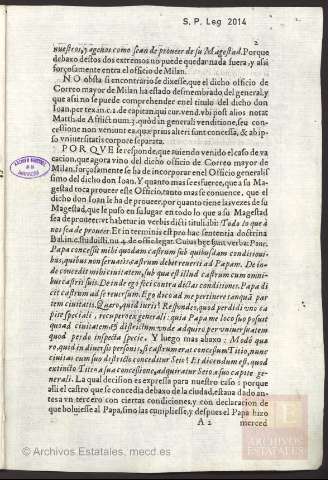 S. P. Leg 2014
2
nuestros, y agenos como sean de proueer de su Magestad. Porque
debaxo destos dos extremos no puede quedar nada fuera, y assi
forçosamente entra el officio de Milan.
NO obsta si encontrario se dixesse, que el dicho officio de
Correo mayor de Milan ha estado desmembrado del general, y
que assi no se puede comprehender en el titulo del dicho don
Iuan, per tex. in c. 1. de capitan. qui cur. vend. vbi post alios notat
Matth. de Afflict num. 3. quòd in generali venditione, seu con
cessione non veniunt ea, quæ prius alteri sunt concessa, & ab ip-
so vniuersitatis corpore separata.
PORQVE se responde, que auiendo venido el caso de va
cacion, que agora vino del dicho officio de Correo mayor de
Milan, forçosamente se ha de incorporar en el Officio generalis
simo del dicho don Iuan. Y quanto mas se esfuerce, que a su Ma-
gestad toca proueer este Officio, tanto mas se conuence, que el
dicho don Iuan le ha de proueer, por quanto tiene las vezes de su
Magestad, que le puso en su lugar en todo lo que a su Magestad
sea de proueer: vt habetur in verbis dicti tituli ibi: Todo lo que à
nos sea de proueer. Et in terminis est pro hac sententia doctrina
Bal. in c. studuisti. nu. 4. de offic. legat. Cuius hęc sunt verba: Pone,
Papa concessit mihi quoddam castrum sub quibusdam conditioni-
bus, quibus non seruatis castrum deberet reuerti ad Papam. Deinde
concedit mihi ciuitatem, sub qua est illud castrum cum omni-
bus castris suis. Deinde ego feci contra dictas conditiones. Papa di
cit castrum ad se reuersum. Ego dico ad me pertinere tanquà par
tem ciuitatis. Quæro, quid iuris? Respondeo, quod perdidi vno ca
pite speciali, recupero ex generali: quia Papa me loco suo posuit
quoad ciuitatem & districtum vnde adquiro per vniuersitatem
quod perdo inspecta specie. Y luego mas abaxo: Modò qua
ro, quid in diuersis personis, si castrum erat concessum Titio, nunc
ciuitas cum suo districtu conceditur Seio? Et dicendum est, quod
extincto Titio à sua concessione, adquiratur Seio à suo capite ge-
nerali. La qual decision es expressa para nuestro caso: porque
alli el castro que se concedia debaxo de la ciudad, estaua dado an-
tes a vn tercero con ciertas condiciones, y con declaracion de
que boluiesse al Papa, sino las cumpliesse, y despues el Papa hizo
A 2
merced
© Archivos Estatales, mecd.es
ARCHIVOS
ESTATALES